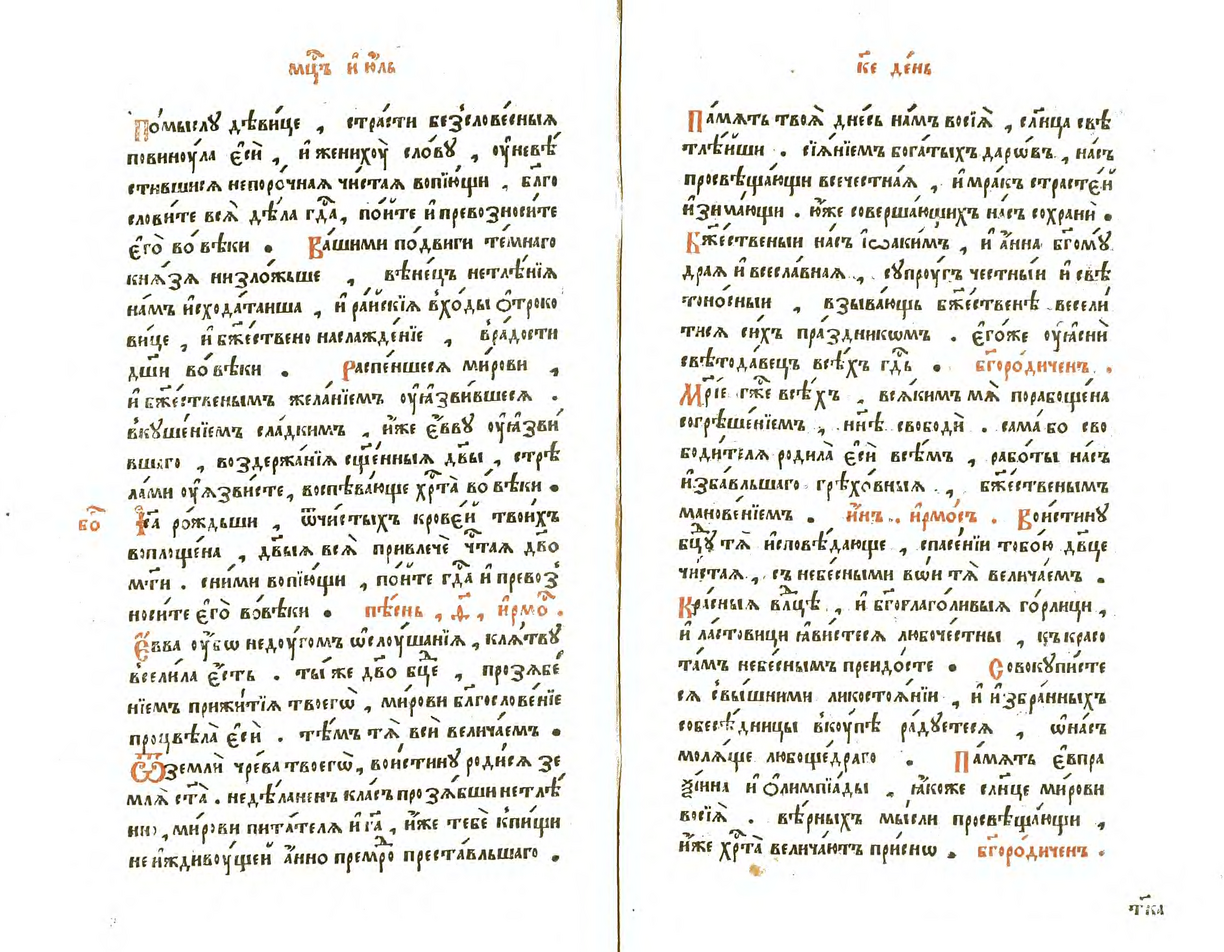 мц҃ъ і҆ю́ль
По́мыслꙋ дѣви́це , стра́сти без̾слове́сныѧ
повинꙋ́ла є҆сѝ , и҆ женихꙋ̀ сло́вꙋ , ᲂу҆невѣ́
стившисѧ непоро́чнаѧ чи́стаѧ вопїю́щи , бл҃го
слови́те всѧ̀ дѣла̀ гдⷭ҇а , по́йте и҆ превозноси́те
є҆го̀ во́ вѣки . Ва́шими по́двиги те́мнаго
кнѧ́зѧ низло́жьше , вѣне́цъ нетлѣ́нїѧ
на́мъ и҆схода́таиша , и҆ ра́йскїѧ вхо́ды ѻ҆троко
ви́це , и҆ бж҃е́ствено наслажде́нїе , вра́дости
дш҃и во́ вѣки . Распе́ншесѧ ми́рови ,
и҆ бж҃е́ственымъ жела́нїемъ ᲂу҆ѧ́звившесѧ .
вкꙋше́нїемъ сла́дкимъ , и҆́же є҆́ввꙋ ᲂу҆ѧзви́
вшаго , воздержа́нїѧ сщ҃е́нныѧ дв҃ы , стрѣ
ла́ми ᲂу҆ѧзви́сте , воспѣва́юще хрⷭ҇та̀ во́ вѣки .
бо҇
І҆с҃а ро́ждьши , ѿчи́стыхъ крове́й твои́хъ
воплоще́на , дв҃ыѧ всѧ̀ привлечѐ чⷭ҇таѧ дв҃о
мт҃и . сни́ми вопїю́щи , по́йте гдⷭ҇а и҆ превоз̾
носи́те є҆го̀ во́вѣки . пѣ́снь , д҃ , і҆рмо́ .
Е҆́вва ᲂу҆́бѡ недꙋ́гомъ ѡ҆слꙋша́нїѧ , клѧ́твꙋ
всели́ла є҆́сть . ты́ же дв҃о бцⷣе , прозѧбе́
нїемъ прижи́тїѧ твоегѡ̀ , ми́рови бл҃гослове́нїе
процвѣла̀ є҆сѝ . тѣ́мъ тѧ̀ вси̏ велича́емъ .
Ѿземлѝ чре́ва твоегѡ̀ , вои́стинꙋ роди́сѧ зе
млѧ̀ ст҃а̀ . недѣ́ланенъ кла́съ прозѧ́бши нетлѣ́
нио , ми́рови пита́телѧ и҆ г҃а , и҆́же тебѐ кпи́щи
не и҆ждивꙋ́щей а҆́нно премрⷣо преста́вльшаго .
к҃е де́нь
Па́мѧть твоѧ̀ дне́сь на́мъ восїѧ̀ , сл҃нца свѣ
тлѣ́йши . сїѧ́нїемъ бога́тыхъ даро́въ , на́съ
просвѣща́ющи всечестна́ѧ , и҆ мра́къ страсте́й
и҆зима́ющи . ю҆́же соверша́ющихъ на́съ сохранѝ .
Бж҃е́ственыи на́съ і҆ѡаки́мъ , и҆ а҆́нна бг҃омꙋ́
драѧ и҆ всесла́внаѧ , сꙋпрꙋ́гъ че́стныи и҆ свѣ
тоно́сныи , взыва́ющь бж҃е́ственѣ весели́
тисѧ си́хъ пра́здникѡмъ . є҆го́же ᲂу҆ѧснѝ
свѣтода́вецъ всѣ́хъ гдⷭ҇ь . бг҃оро́диченъ .
Мр҃і́е гж҃е всѣ́хъ , всѧ́кимъ мѧ̀ порабоще́на
согрѣше́нїемъ , нн҃ѣ свободѝ . сама́ бо сво
боди́телѧ родила̀ є҆сѝ всѣ́мъ , рабо́ты на́съ
и҆зба́вльшаго грѣхо́вныѧ , бж҃е́ственымъ
манове́нїемъ . и҆́нъ . і҆рмо́съ . Вои́стинꙋ
бцⷣꙋ тѧ̀ и҆сповѣ́дающе , спасе́нїи тобо́ю дв҃це
чи́стаѧ , съ небе́сными во́и тѧ̀ велича́емъ .
Кра́сныѧ влⷣцѣ , и҆ бг҃оглаго́ливыѧ го́рлици ,
и҆ ла́стовици ꙗ҆ви́стесѧ любоче́стны , къ красо
та́мъ небе́снымъ преидо́сте . Совокꙋпи́сте
сѧ свы́шними ликостоѧ́нїи , и҆ и҆збра́нныхъ
собесѣ́дницы вкꙋ́пѣ ра́дꙋетесѧ , ѡ҆на́съ
молѧ́ще любоще́драго . Па́мѧть є҆впра
ѯі́ина и҆ ѻ҆лимпїа́ды , ꙗ҆́коже сл҃нце ми́рови
восїѧ̀ . вѣ́рныхъ мы́сли просвѣща́ющи ,
и҆́же хрⷭ҇та̀ велича́ютъ при́снѡ . бг҃оро́диченъ .
тк҃а